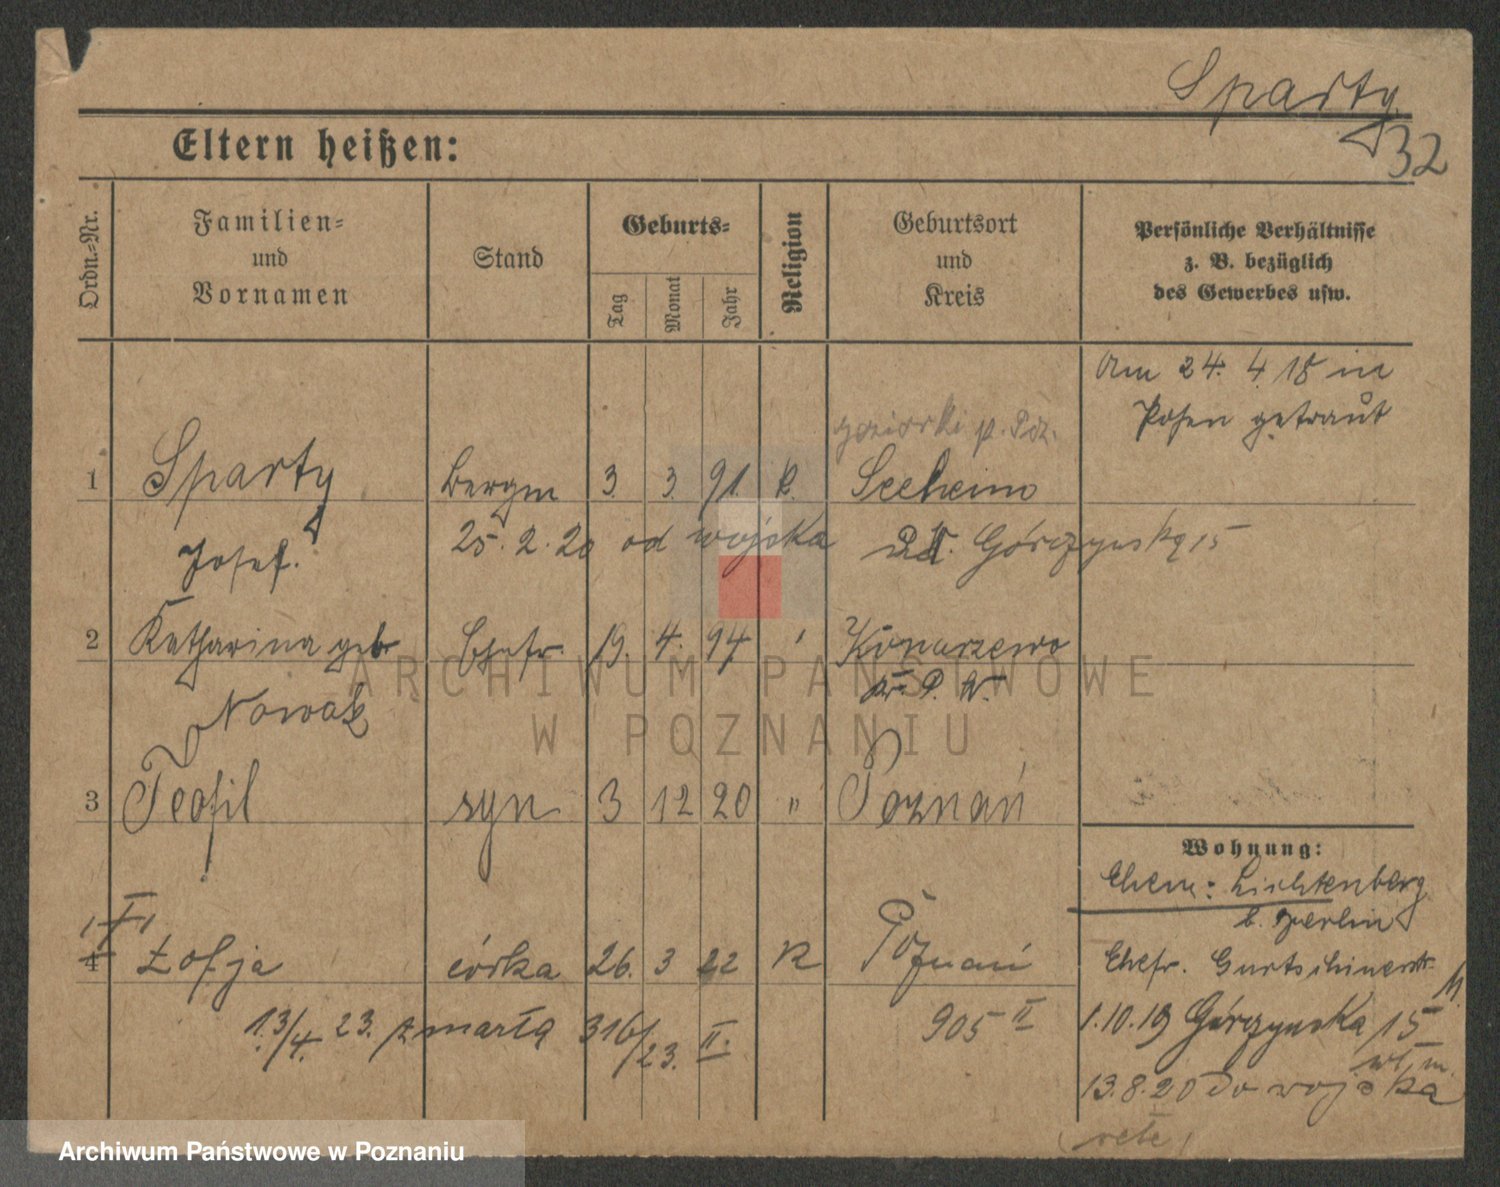 Sparty
32
Eltern heißen:
Ordn.-Nr.
Familien-
und
Vornamen
Stand
Geburts-
Tag
Monat
Jahr
Religion
Geburtsort
und
Kreis
Persönliche Verhältnisse
z. B. bezüglich
des Gewerbes usw.
Am 24. 4 18 in
Posen getraut
1 Sparty Bergm 3. 3. 91. k. Seeheim
Josef. 25. 2. 20 od wojska ul. Górczyńska 15
2 Katharina geb. Ehefr. 19. 4. 94 Konarzewo
Nowak kr. P. W.
3 Teofil syn 3 12 20 " Poznań
Wohnung:
Ehem: Lichtenberg
b. Berlin
4 Zofja córka 26. 3 22 k Poznań
Ehefr.
1.3/4. 23. zmarła 316/23. II. 905 II
1.10.19 Górczynska 15
13.8.20 do wojska
ARCHIWUM PAŃSTWOWE
W POZNANIU
Archiwum Państwowe w Poznaniu